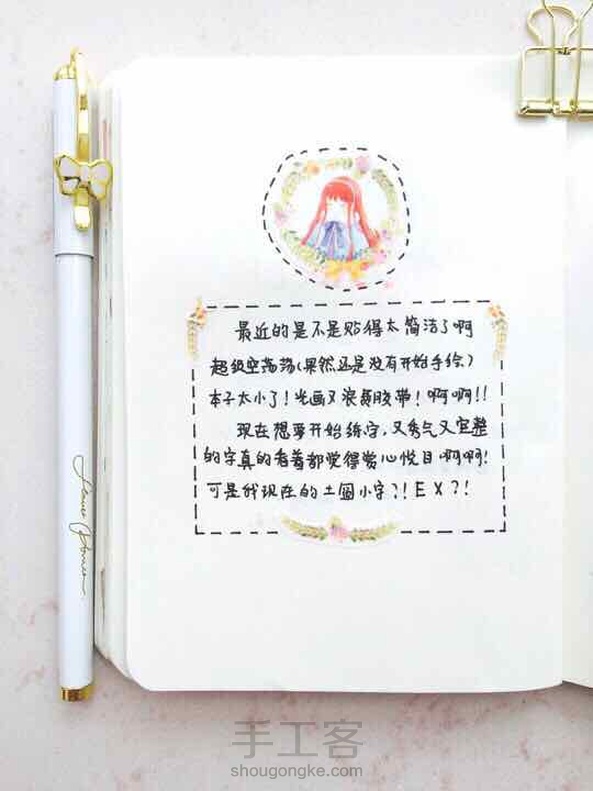 最近的是不是贴得太简洁了啊
超级空荡荡(果然还是没有开始手绘)
本子太小了!光画又浪费胶带!啊啊!!
现在想要开始练字,又秀气又完整
的字真的看着都觉得赏心悦目啊啊!
可是我现在的土圆小字?!EX?!
手工客
shougongke.com